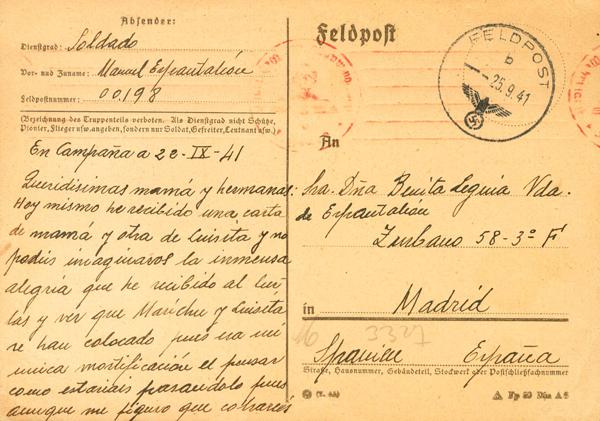 Absender:
Dienstgrad: Soldado
Vor- und Zuname: Manuel Espantaleón
Feldpostnummer: 00198
(Bezeichnung des Truppenteils verboten. Als Dienstgrad nicht Schütze,
Pionier, Flieger usw. angeben, sondern nur Soldat, Gefreiter, Leutnant usw.)
En Campaña a 22-IX-41
Queridisimas mamá y hermanas:
Hoy mismo he recibido una carta
de mamá y otra de Luisita y no
podeis imaginaros la inmensa
alegria que he recibido al leer
las y ver que Marichu y Luisita
se han colocado pues era mi
unica mortificación el pensar
como estariais pasandolo pues
aunque me figuro que cobrareis
Feldpost
FELDPOST
b
-25.9.41
An
Sra. Dña Benita Leguia Vda.
de Espantaleón
Zurbano 58-3º F
in Madrid
16 3327
Spanien España
Straße, Hausnummer, Gebäudeteil, Stockwerk oder Postschließfachnummer